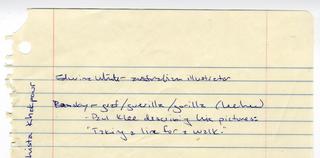 Edwina White - australian illustrator
Banksy - graf/guerilla/gorilla
- Paul Klee describing his pictures
"Taking a line for a walk."